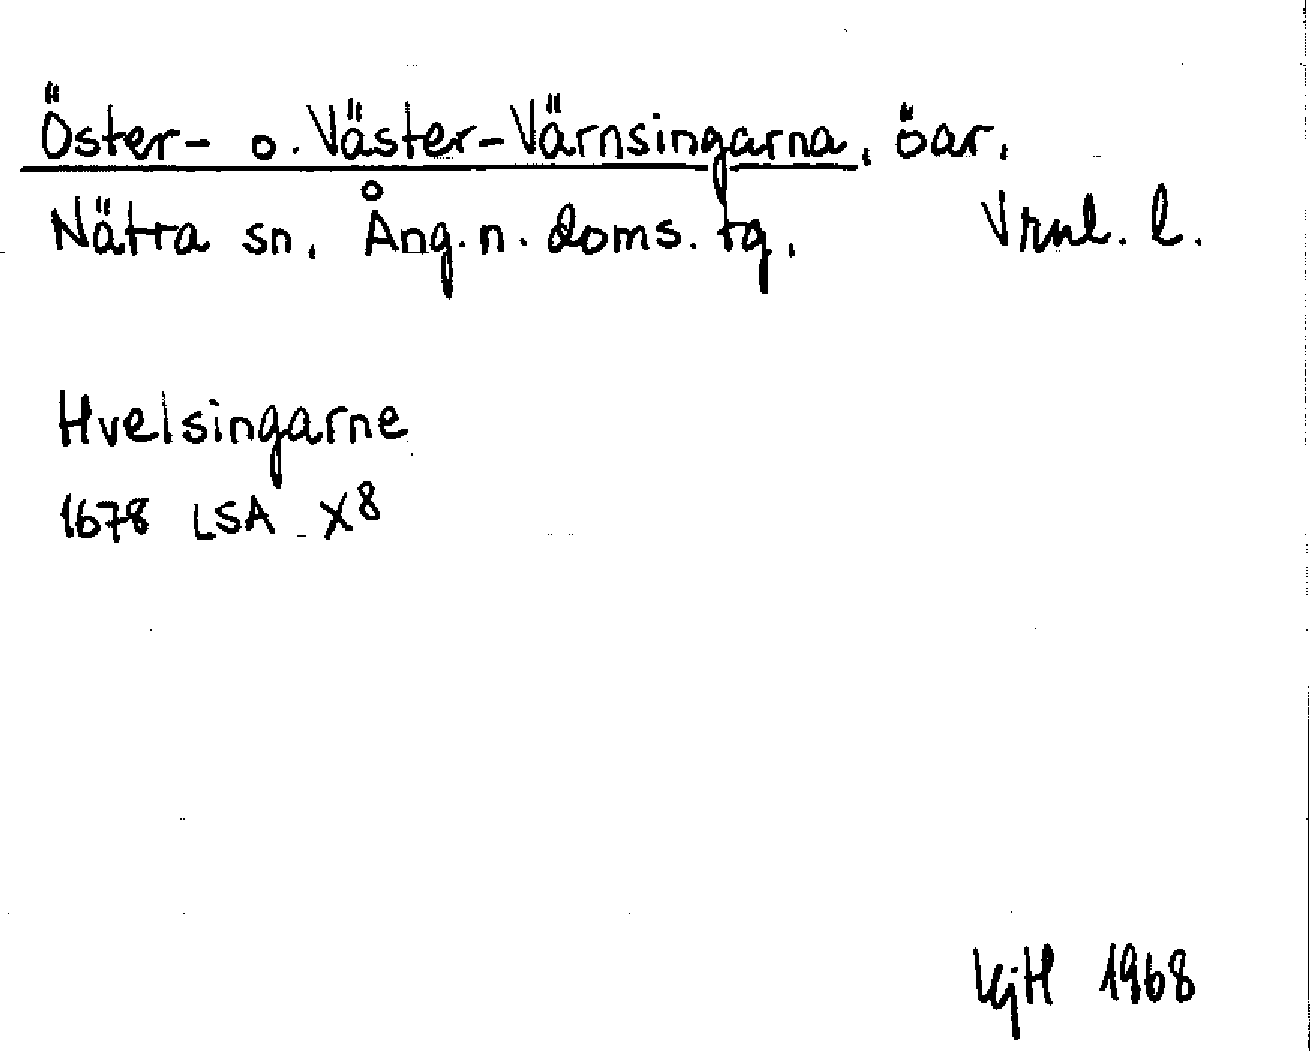 Öster- o. Väster-Värnsingarna, öar.
Nätra sn. Ång.n. doms. tg. Vrnl. l.
Hvelsingarne
1678 LSA X8
KjH 1968